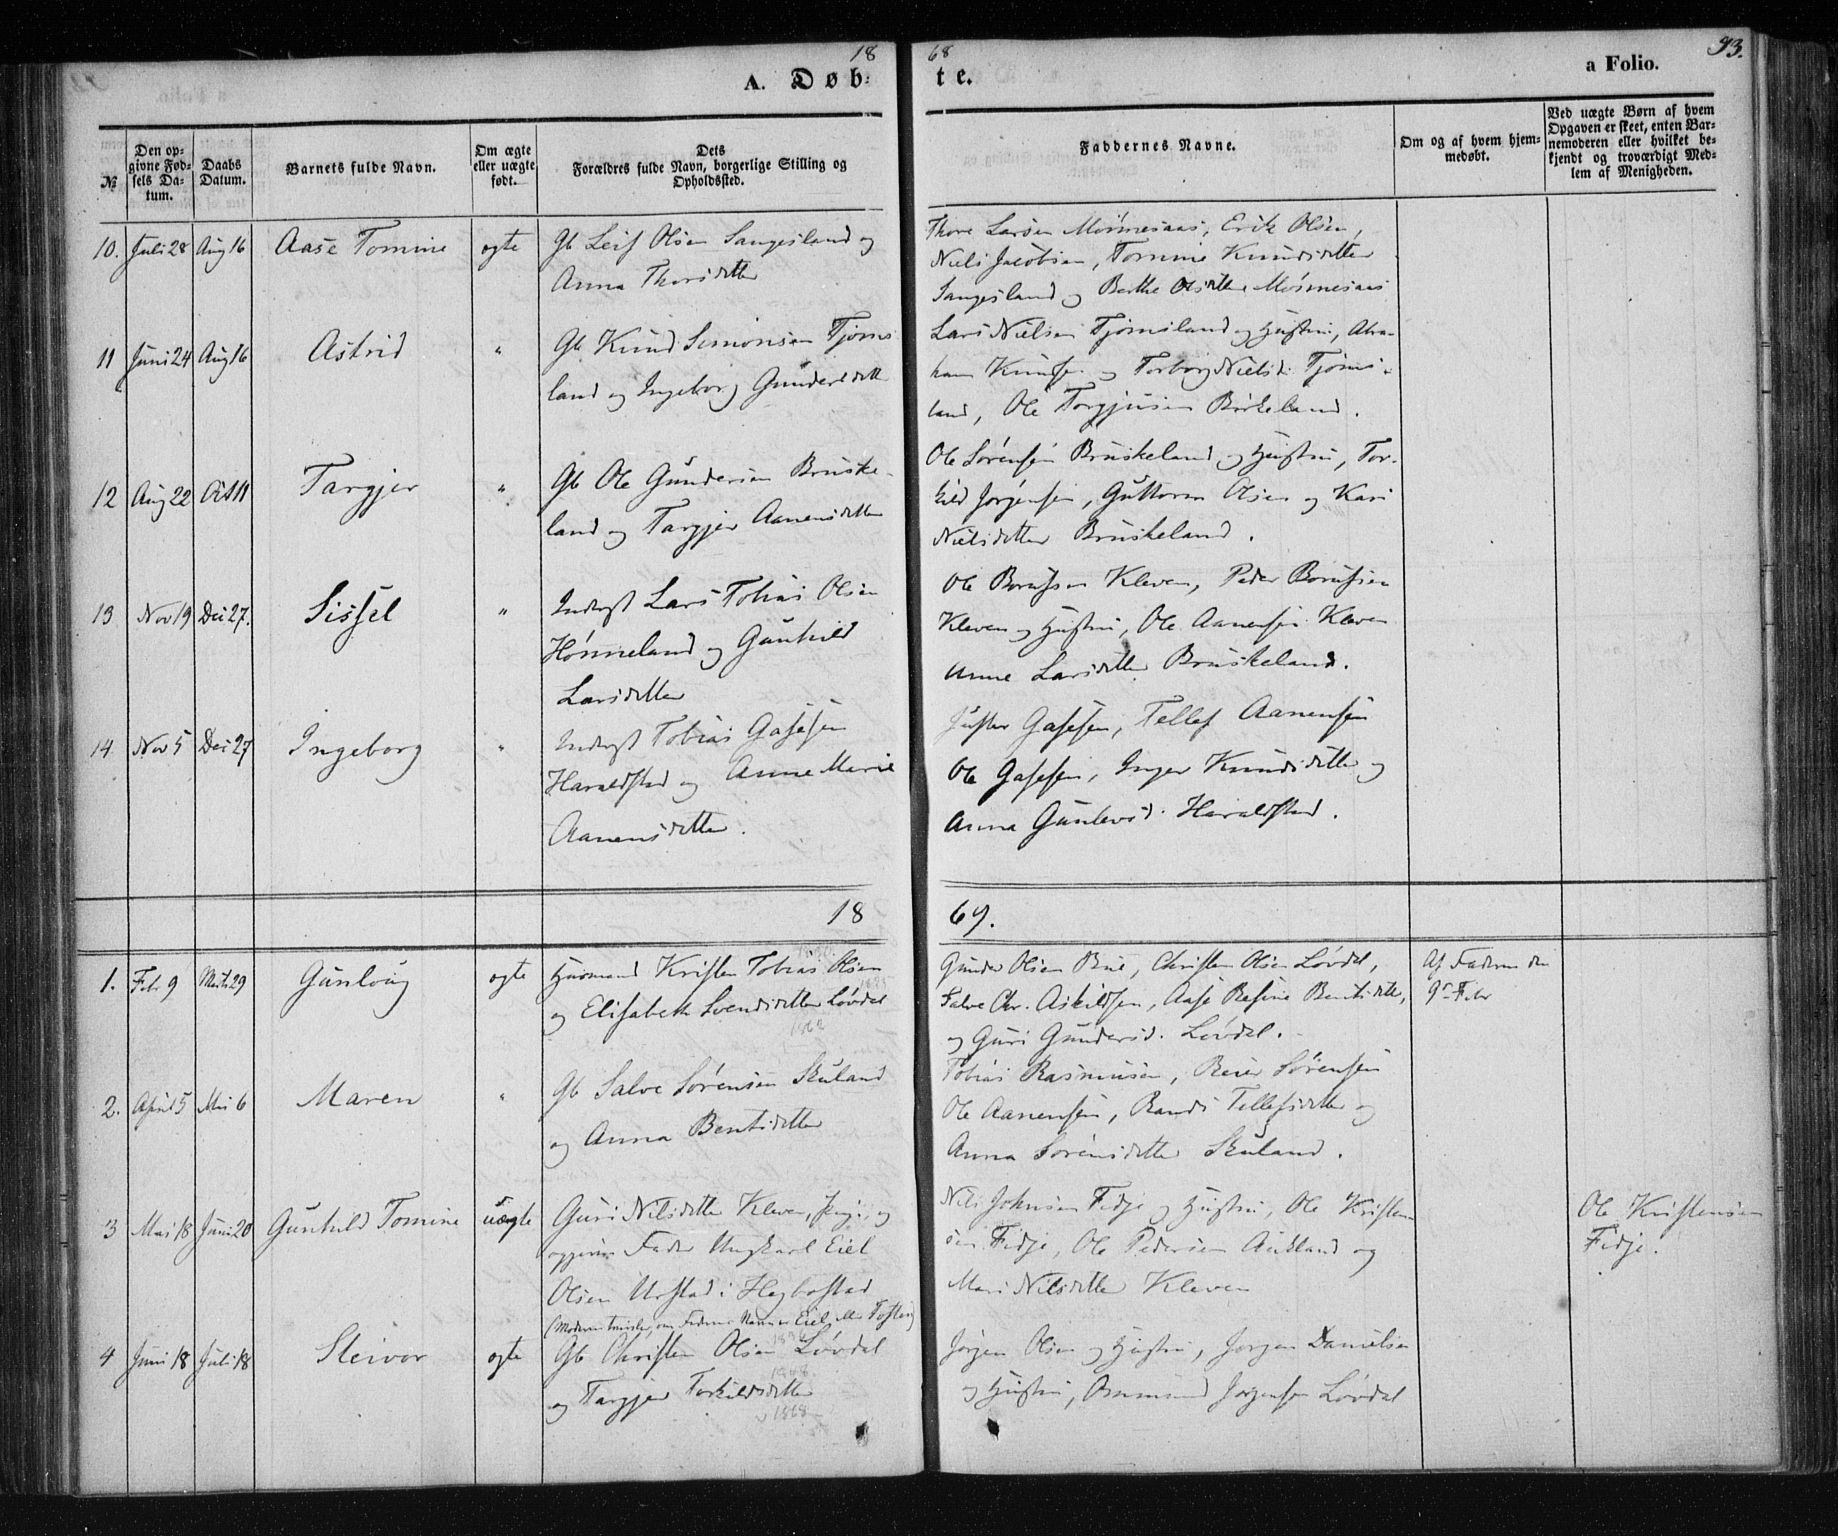 18 68 93.
A. Døb- te. a Folio.
№
Den op-
givne Fød-
sels Da-
tum.
Daabs
Datum.
Barnets fulde Navn.
Om ægte
eller uægte
født.
Dets
Forældres fulde Navn, borgerlige Stilling og
Opholdssted.
Faddernes Navne.
Om og af hvem hjem-
medøbt.
Ved uægte Børn af hvem
Opgaven er skeet, enten Bar-
nemoderen eller hvilket be-
kjendt og troværdigt Med-
lem af Menigheden.
10. Juli 28 Aug 16 Aase Tomine ægte Gb Leif Olsen Sangesland og
Anna Thorsdatter
Thore Larsen Mønnesaas, Erik Olsen,
Niels Jacobsen, Tomine Knudsdatter
Sangesland og Berthe Olsdatter Mønnesaas
11 Juni 24 Aug 16 Astrid " Gb Knud Simonsen Tjoms
land og Ingeborg Gundersdatt
Lars Nielsen Tjomsland og Hustru, Abra-
ham Knudsen og Torborg Nielsd. Tjoms-
land, Ole Torgjusen Birkeland.
12 Aug 22 Oct 11 Targjer " Gb Ole Gundersen Bruske-
land og Targjer Aanensdatter
Ole Sørensen Bruskeland og Hustru, Tor-
kild Jørgensen, Guttorm Olsen og Kari
Nielsdatter Bruskeland.
13 Nov 19 Dec 27. Sissel " Inderst Lars Tobias Olsen
Hønneland og Gunhild
Larsdatter
Ole Borufsen Kleven, Peder Borufsen
Kleven og Hustru, Ole Aanensen Kleven
Anne Larsdatter Bruskeland.
14 Nov 5 Dec 27 Ingeborg " Inderst Tobias Gasesen
Haraldstad og Anne Marie
Aanensdatter.
Gasesen, Tellef Aanensen
Ole Gasesen, Inger Knudsdatter og
Anna Gunlevsd. Haraldstad.
18 69.
1. Feb 9 Marts 29 Gunloug ægte Husmand Kristen Tobias Olsen
og Elisabeth Svendsdatter Løvdal
Gunder Olsen Bue, Christen Olsen Løvdal,
Salve Chr. Askildsen, Aase Resine Bentsdatter,
og Guri Gundersd. Løvdal.
Af Faderen den
9de Febr
2. April 5 Mai 6 Maren " Gb Salve Sørensen Skuland
og Anna Bentsdatter
Tobias Rasmussen, Reier Sørensen
Ole Aanensen, Randi Tellefsdatter og
Anna Sørensdatter Skuland.
3 Mai 18 Juni 20 Gunhild Tomine uægte Guri Nilsdatter Kleven, Pige, og
opgiven Fader Ungkarl Eiel
Olsen Urstad i Hegbostad
(Moderen tvivler, om Faderens Navn er Eiel eller Tosten)
Nils Johnsen Fidje og Hustru, Ole Kristen-
sen Fidje, Ole Pedersen Aukland og
Mari Nilsdatter Kleven
Ole Kristensen
Fidje.
4 Juni 18 Juli 18 Steivor ægte Gb Christen Olsen Løvdal
og Targjer Torkildsdatter
1868
Jørgen Olsen og Hustru, Jørgen Danielsen
og Hustru, Osmund Jørgensen Løvdal